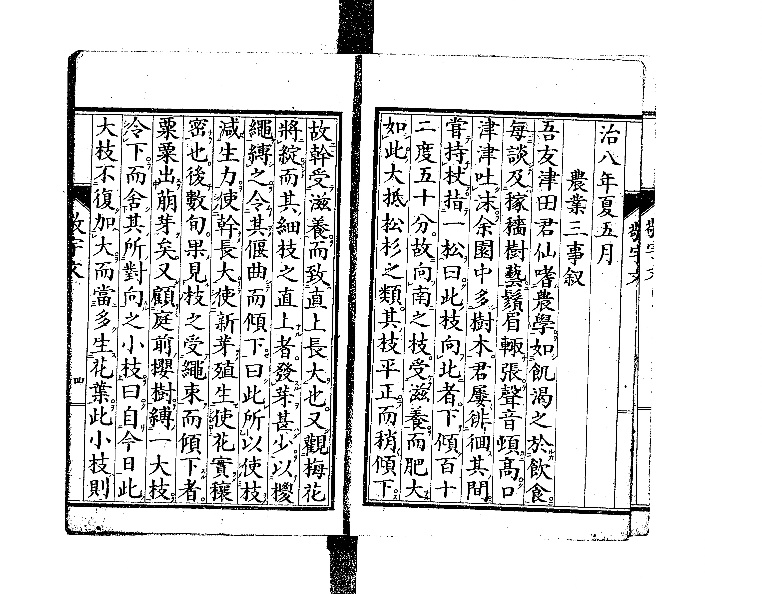 治八年夏五月
農業三事叙
吾友津田君仙嗜農學如飢渴之於飲食
每談及稼穡樹藝鬚眉輙張聲音頓高口
津津吐沫余園中多樹木君屢徘徊其間
嘗持杖指一松曰此枝向北者下傾百十
二度五十分故向南之枝受滋養而肥大
如此大抵松杉之類其枝平正而稍傾下
故幹受滋養而致直上長大也又觀梅花
將綻而其細枝之直上者發芽甚少以櫻
繩縛之令其偃曲而傾下曰此所以使枝
減生力使幹長大使新芽殖生使花實穰
密也後數旬果見枝之受繩束而傾下者
粟粟出萠芽矣又顧庭前櫻樹縛一大枝
令下而舍其所對向之小枝曰自今日此
大枝不復加大而當多生花葉此小枝則
敬宇文
四